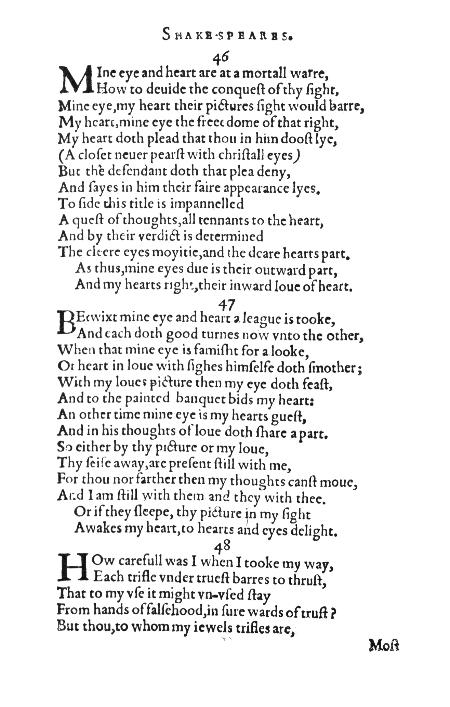 SHAKE-SPEARES.
46
MIne eye and heart are at a mortall warre,
How to deuide the conquest of thy sight,
Mine eye,my heart their pictures sight would barre,
My heart,mine eye the freedome of that right,
My heart doth plead that thou in him doost lye,
(A closet neuer pearst with christall eyes)
But the defendant doth that plea deny,
And sayes in him their faire appearance lyes.
To side this title is impannelled
A quest of thoughts,all tennants to the heart,
And by their verdict is determined
The cleere eyes moyitie,and the deare hearts part.
As thus,mine eyes due is their outward part,
And my hearts right,their inward loue of heart.
47
BEtwixt mine eye and heart a league is tooke,
And each doth good turnes now vnto the other,
When that mine eye is famisht for a looke,
Or heart in loue with sighes himselfe doth smother;
With my loues picture then my eye doth feast,
And to the painted banquet bids my heart:
An other time mine eye is my hearts guest,
And in his thoughts of loue doth share a part.
So either by thy picture or my loue,
Thy seife away,are present still with me,
For thou nor farther then my thoughts canst moue,
And I am still with them and they with thee.
Or if they sleepe, thy picture in my sight
Awakes my heart,to hearts and eyes delight.
48
HOw carefull was I when I tooke my way,
Each trifle vnder truest barres to thrust,
That to my vse it might vn-vsed stay
From hands of falsehood,in sure wards of trust?
But thou,to whom my iewels trifles are,
Most